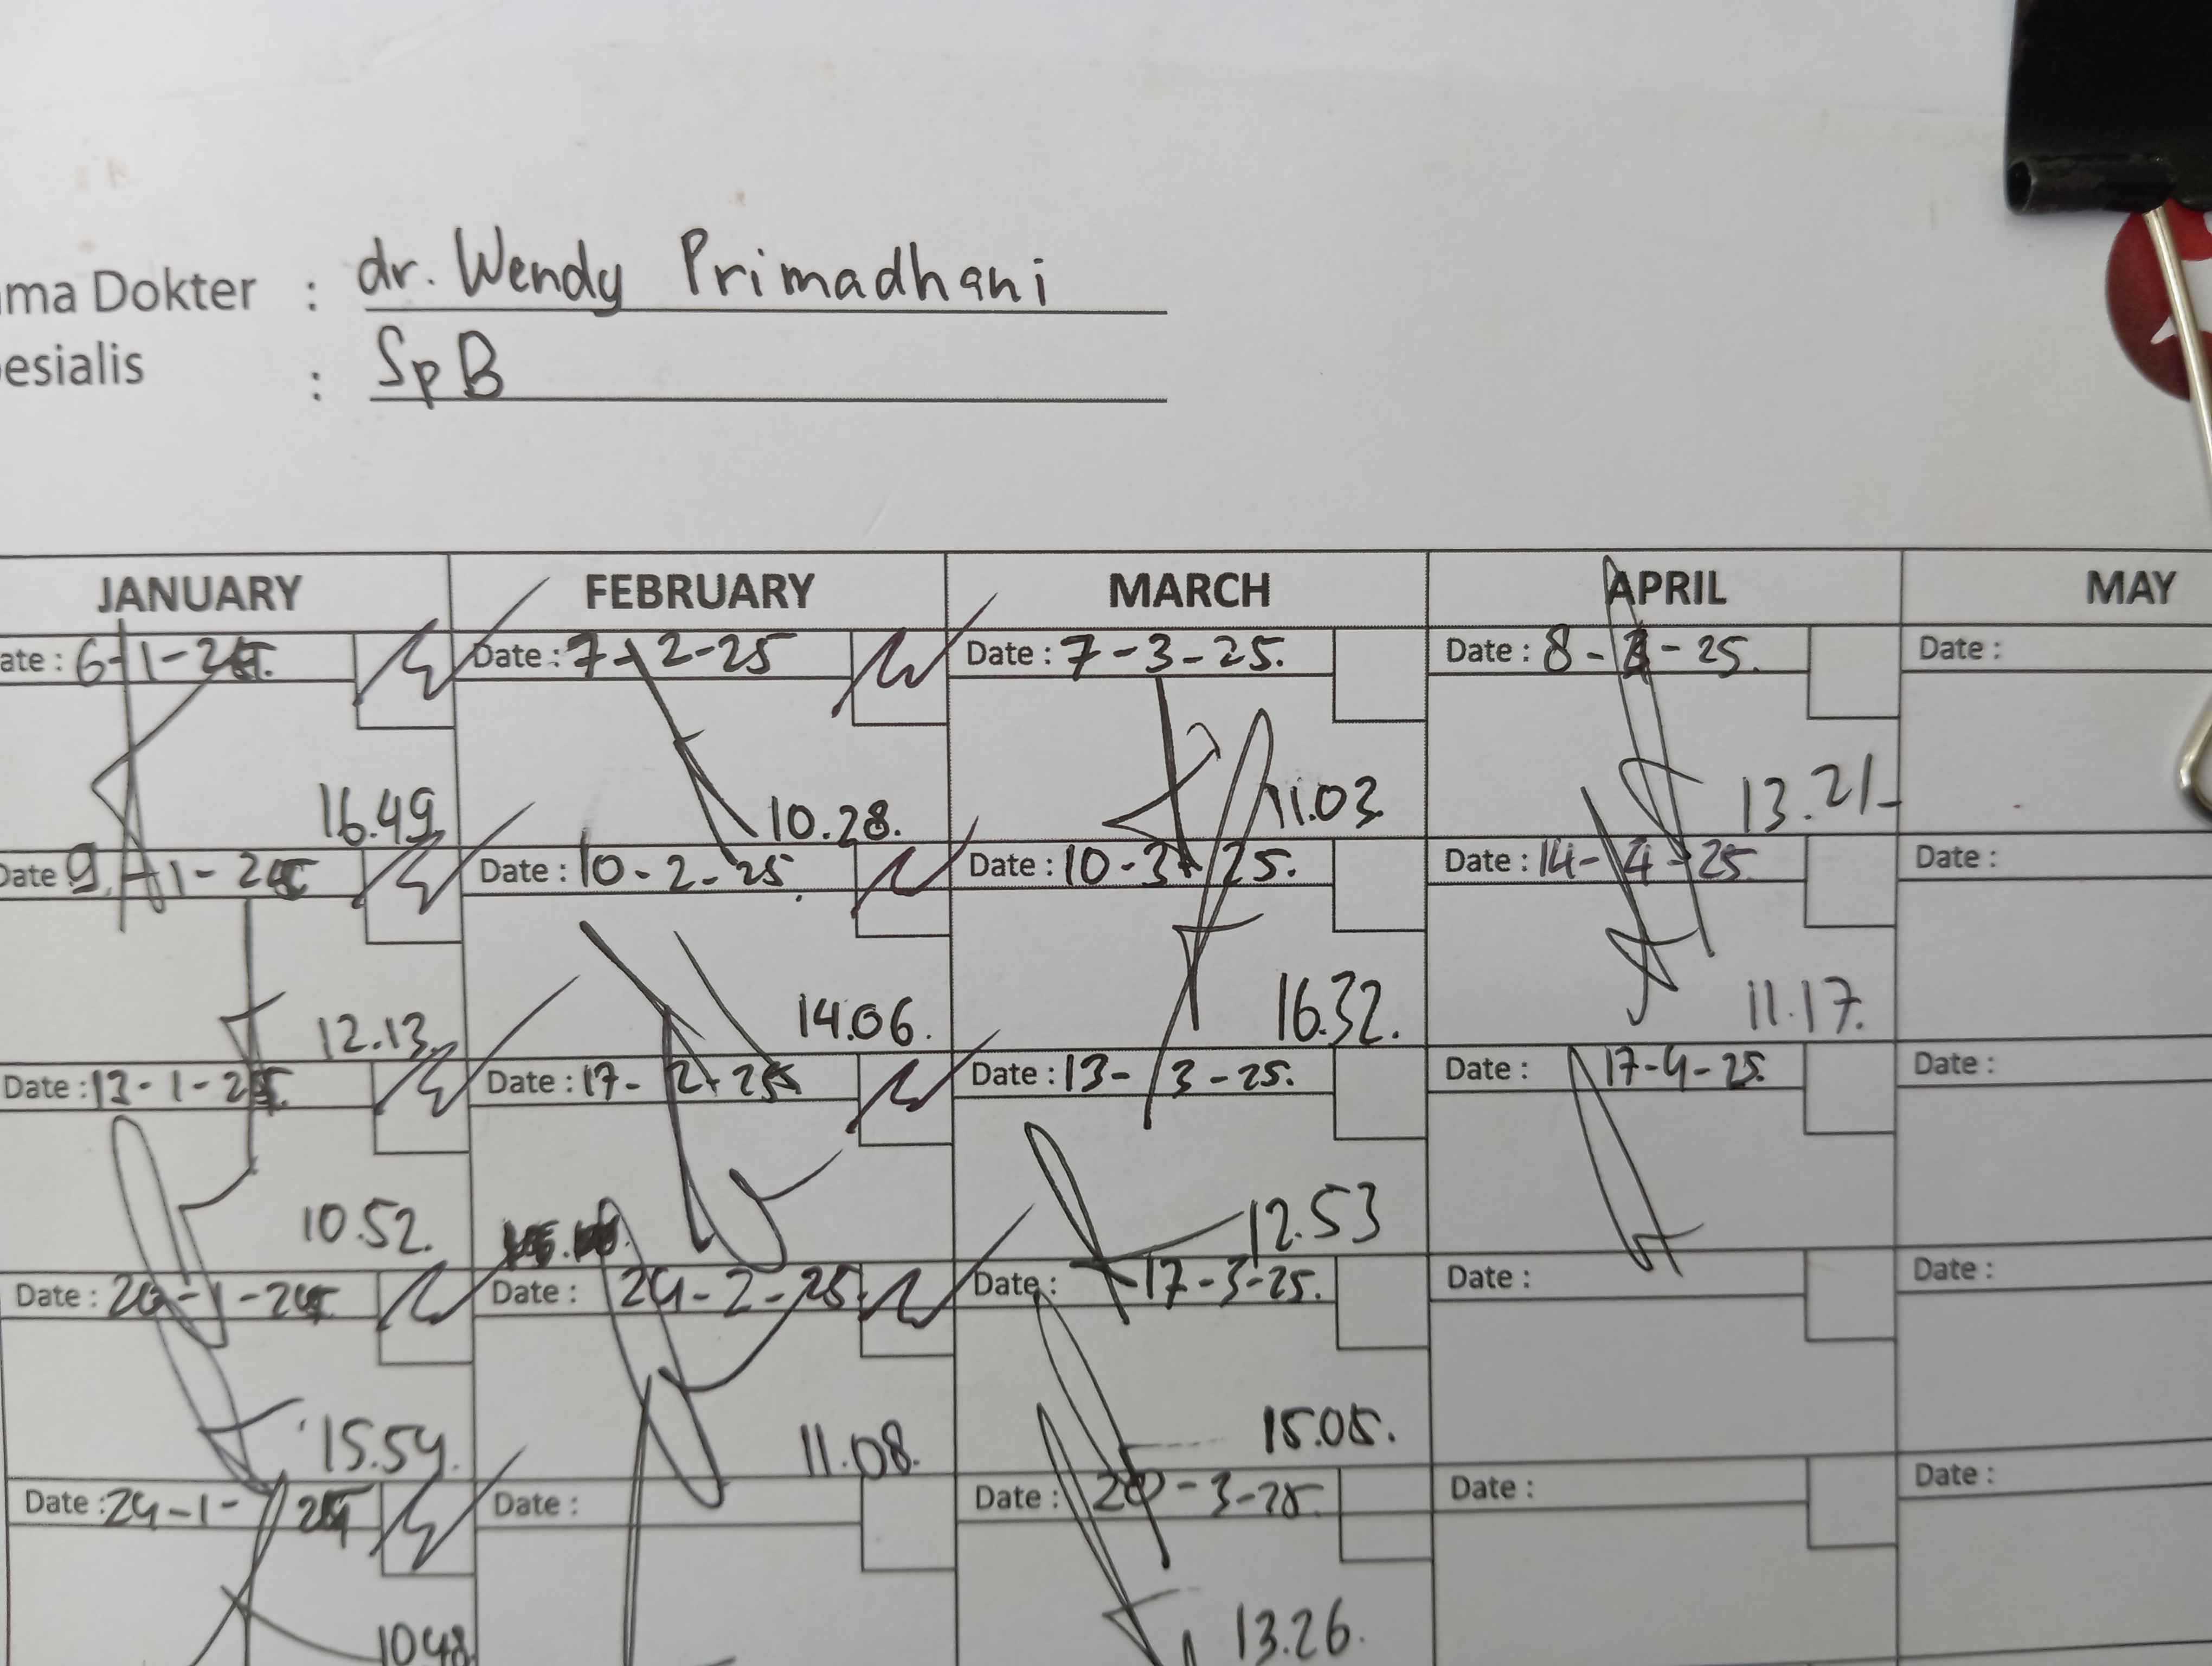 ma Dokter : dr. Wendy Primadhani
esialis : SpB
JANUARY FEBRUARY MARCH APRIL MAY
ate : 6-1-25. Date : 7-2-25 Date : 7-3-25. Date : 8- -25. Date :
16.49 10.28. 11.03 13.21
Date 9-1-25 Date : 10-2-25. Date : 10-3-25. Date : 14-4-25 Date :
12.13. 14.06. 16.32. 11.17.
Date : 13-1-25. Date : 17-2-25 Date : 13-3-25. Date : 17-4-25. Date :
10.52. 12.53
Date : 20-1-25 Date : 24-2-25 Date : 17-3-25. Date : Date :
15.54. 11.08. 15.05.
Date : 24-1-25 Date : Date : 20-3-25. Date : Date :
1048 13.26.